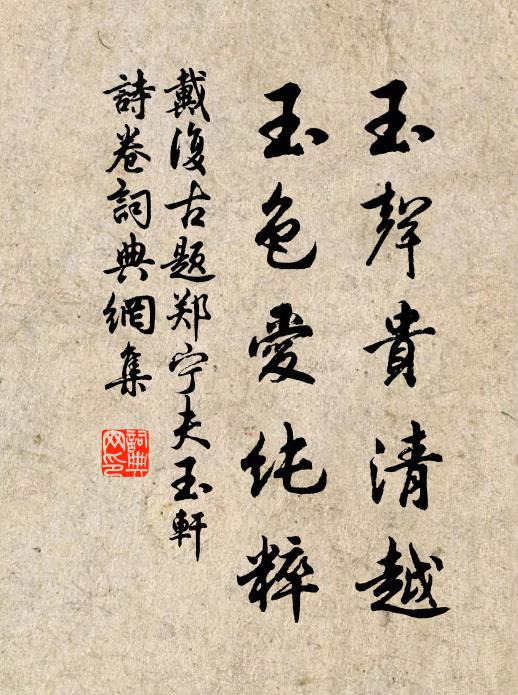 玉聲貴清越
玉色愛纯粹
戴復古题郑宁夫玉軒
詩卷詞典網集
詞典网印